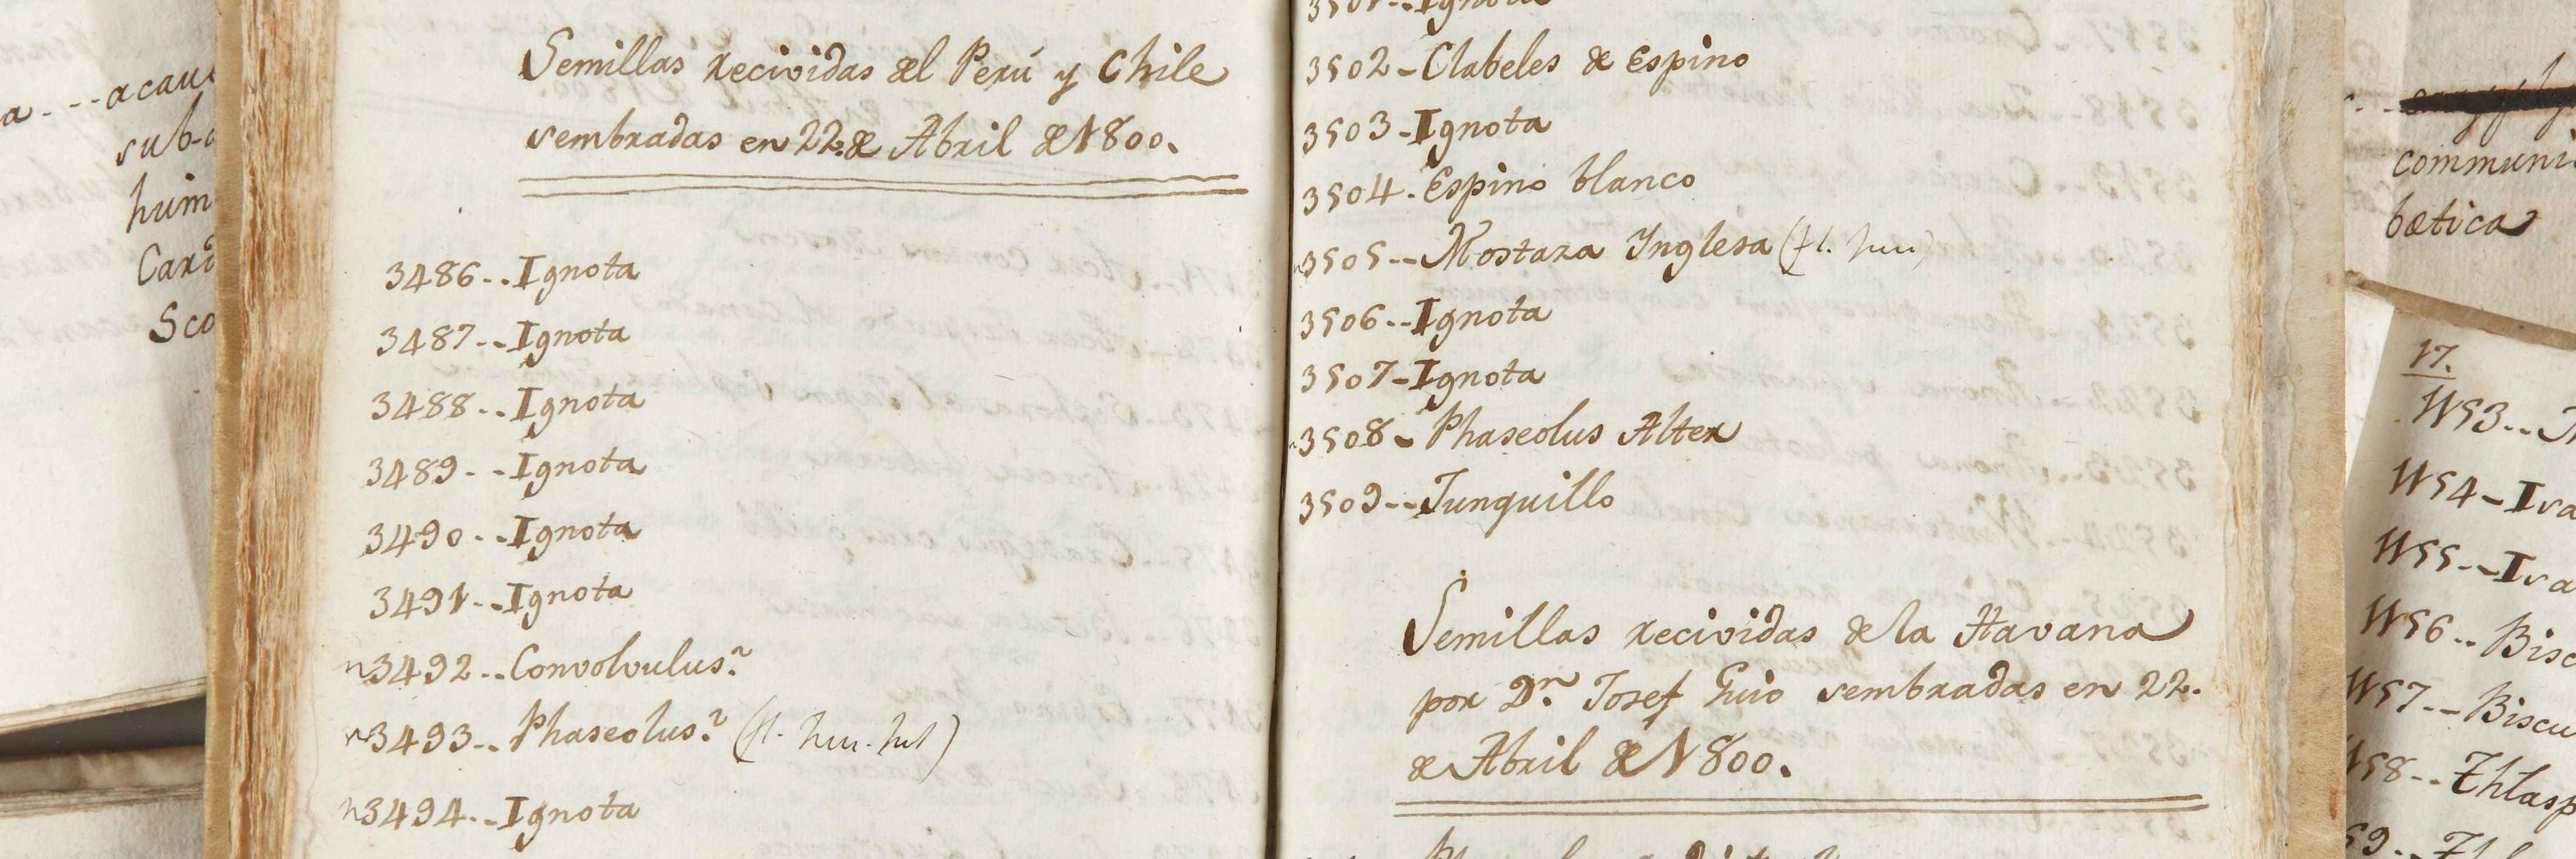 a - - - acau
sub-
hum
Car
Sco
Semillas recividas del Perú y Chile
sembradas en 22. de Abril de 1800.
3486 - - Ignota
3487 - - Ignota
3488 - - Ignota
3489 - - Ignota
3490 - - Ignota
3491 - - Ignota
n3492 - - Convolvulus?
n3493 - - Phaseolus? (fl. Jun. Jul)
n3494 - - Ignota
3501 - - Ignota
3502 - Clabeles de Espino
3503 - Ignota
3504 - Espino blanco
n3505 - - Mostaza Ynglesa (fl. Jun)
3506 - - Ignota
3507 - Ignota
n3508 - Phaseolus Alter
3509 - - Junquillo
Semillas recividas de la Havana
por Dn. Josef Guio sembradas en 22.
de Abril de 1800.
communi
bætica
17.
1153 - -
1154 - Iva
1155 - - Iva
1156 - - Bisc
1157 - - Biscu
1158 - - Thlasp
59 - -